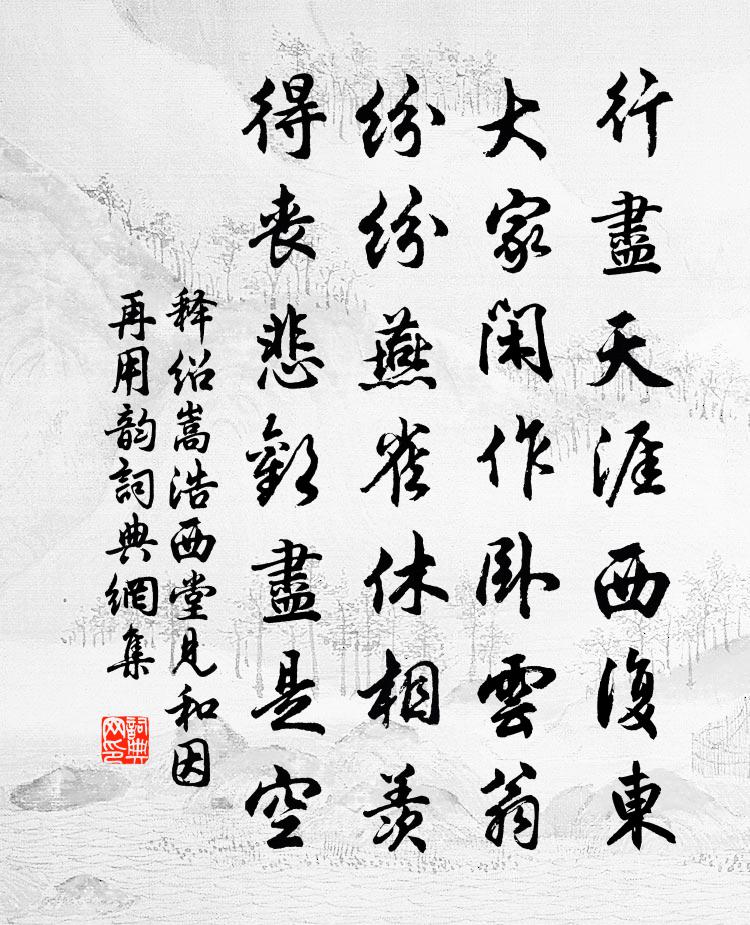 行盡天涯西復東
大家閑作臥雲翁
紛紛燕雀休相羨
得喪悲歡盡是空
释绍嵩浩西堂見和因
再用韵詞典網集
詞典
网印